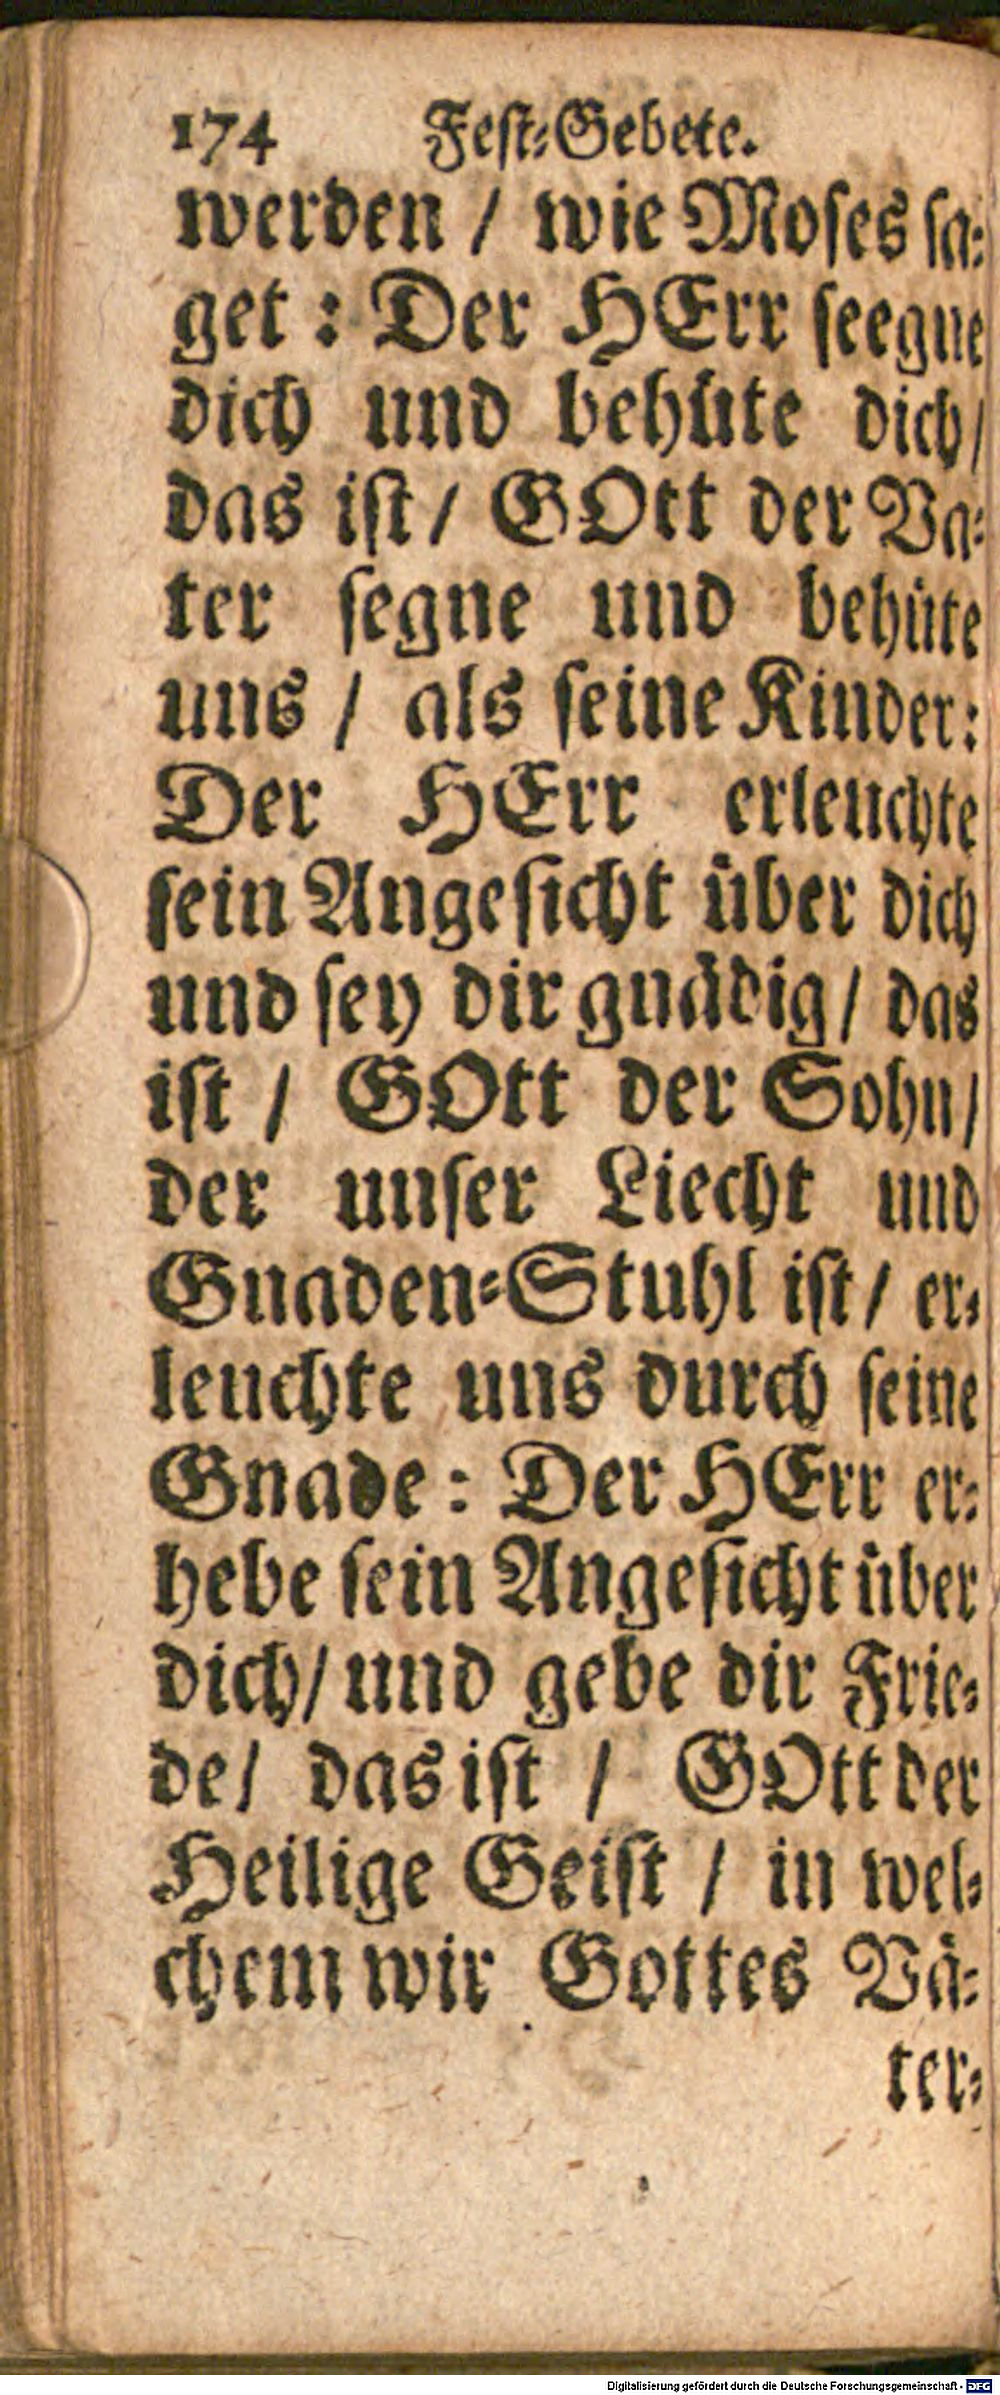 174 Fest-Gebete.
werden / wie Moses sa-
get : Der HErr seegne
dich und behüte dich/
das ist/ GOtt der Va-
ter segne und behüte
uns / als seine Kinder:
Der HErr erleuchte
sein Angesicht über dich
und sey dir gnädig/ das
ist / GOtt der Sohn/
der unser Liecht und
Gnaden-Stuhl ist/ er-
leuchte uns durch seine
Gnade : Der HErr er-
hebe sein Angesicht über
dich/ und gebe dir Frie-
de/ das ist / GOtt der
Heilige Geist / in wel-
chem wir Gottes Vä-
ter-
Digitalisierung gefördert durch die Deutsche Forschungsgemeinschaft - DFG